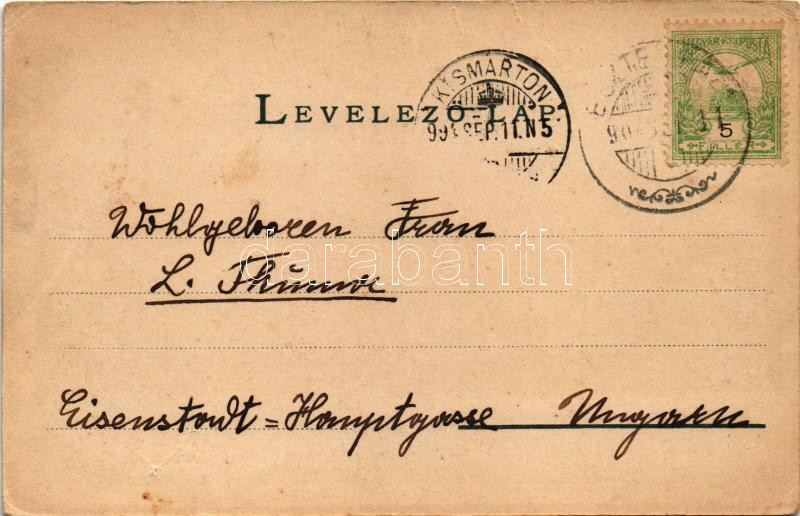 MAGYAR KIR. POSTA
KISMARTON
LEVELEZŐ-LAP.
904 SEP. 11. N5
5
FILLÉR
Wohlgeboren Frau
darabanth
L. Thumme
Eisenstadt = Hauptgasse Ungarn